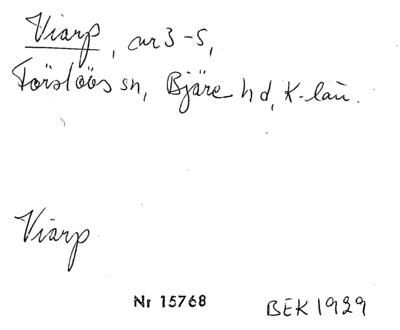 Viarp, nr 3-5,
Förslöös sn, Bjäre hd, K-län.
Viarp
Nr 15768 BEK 1929